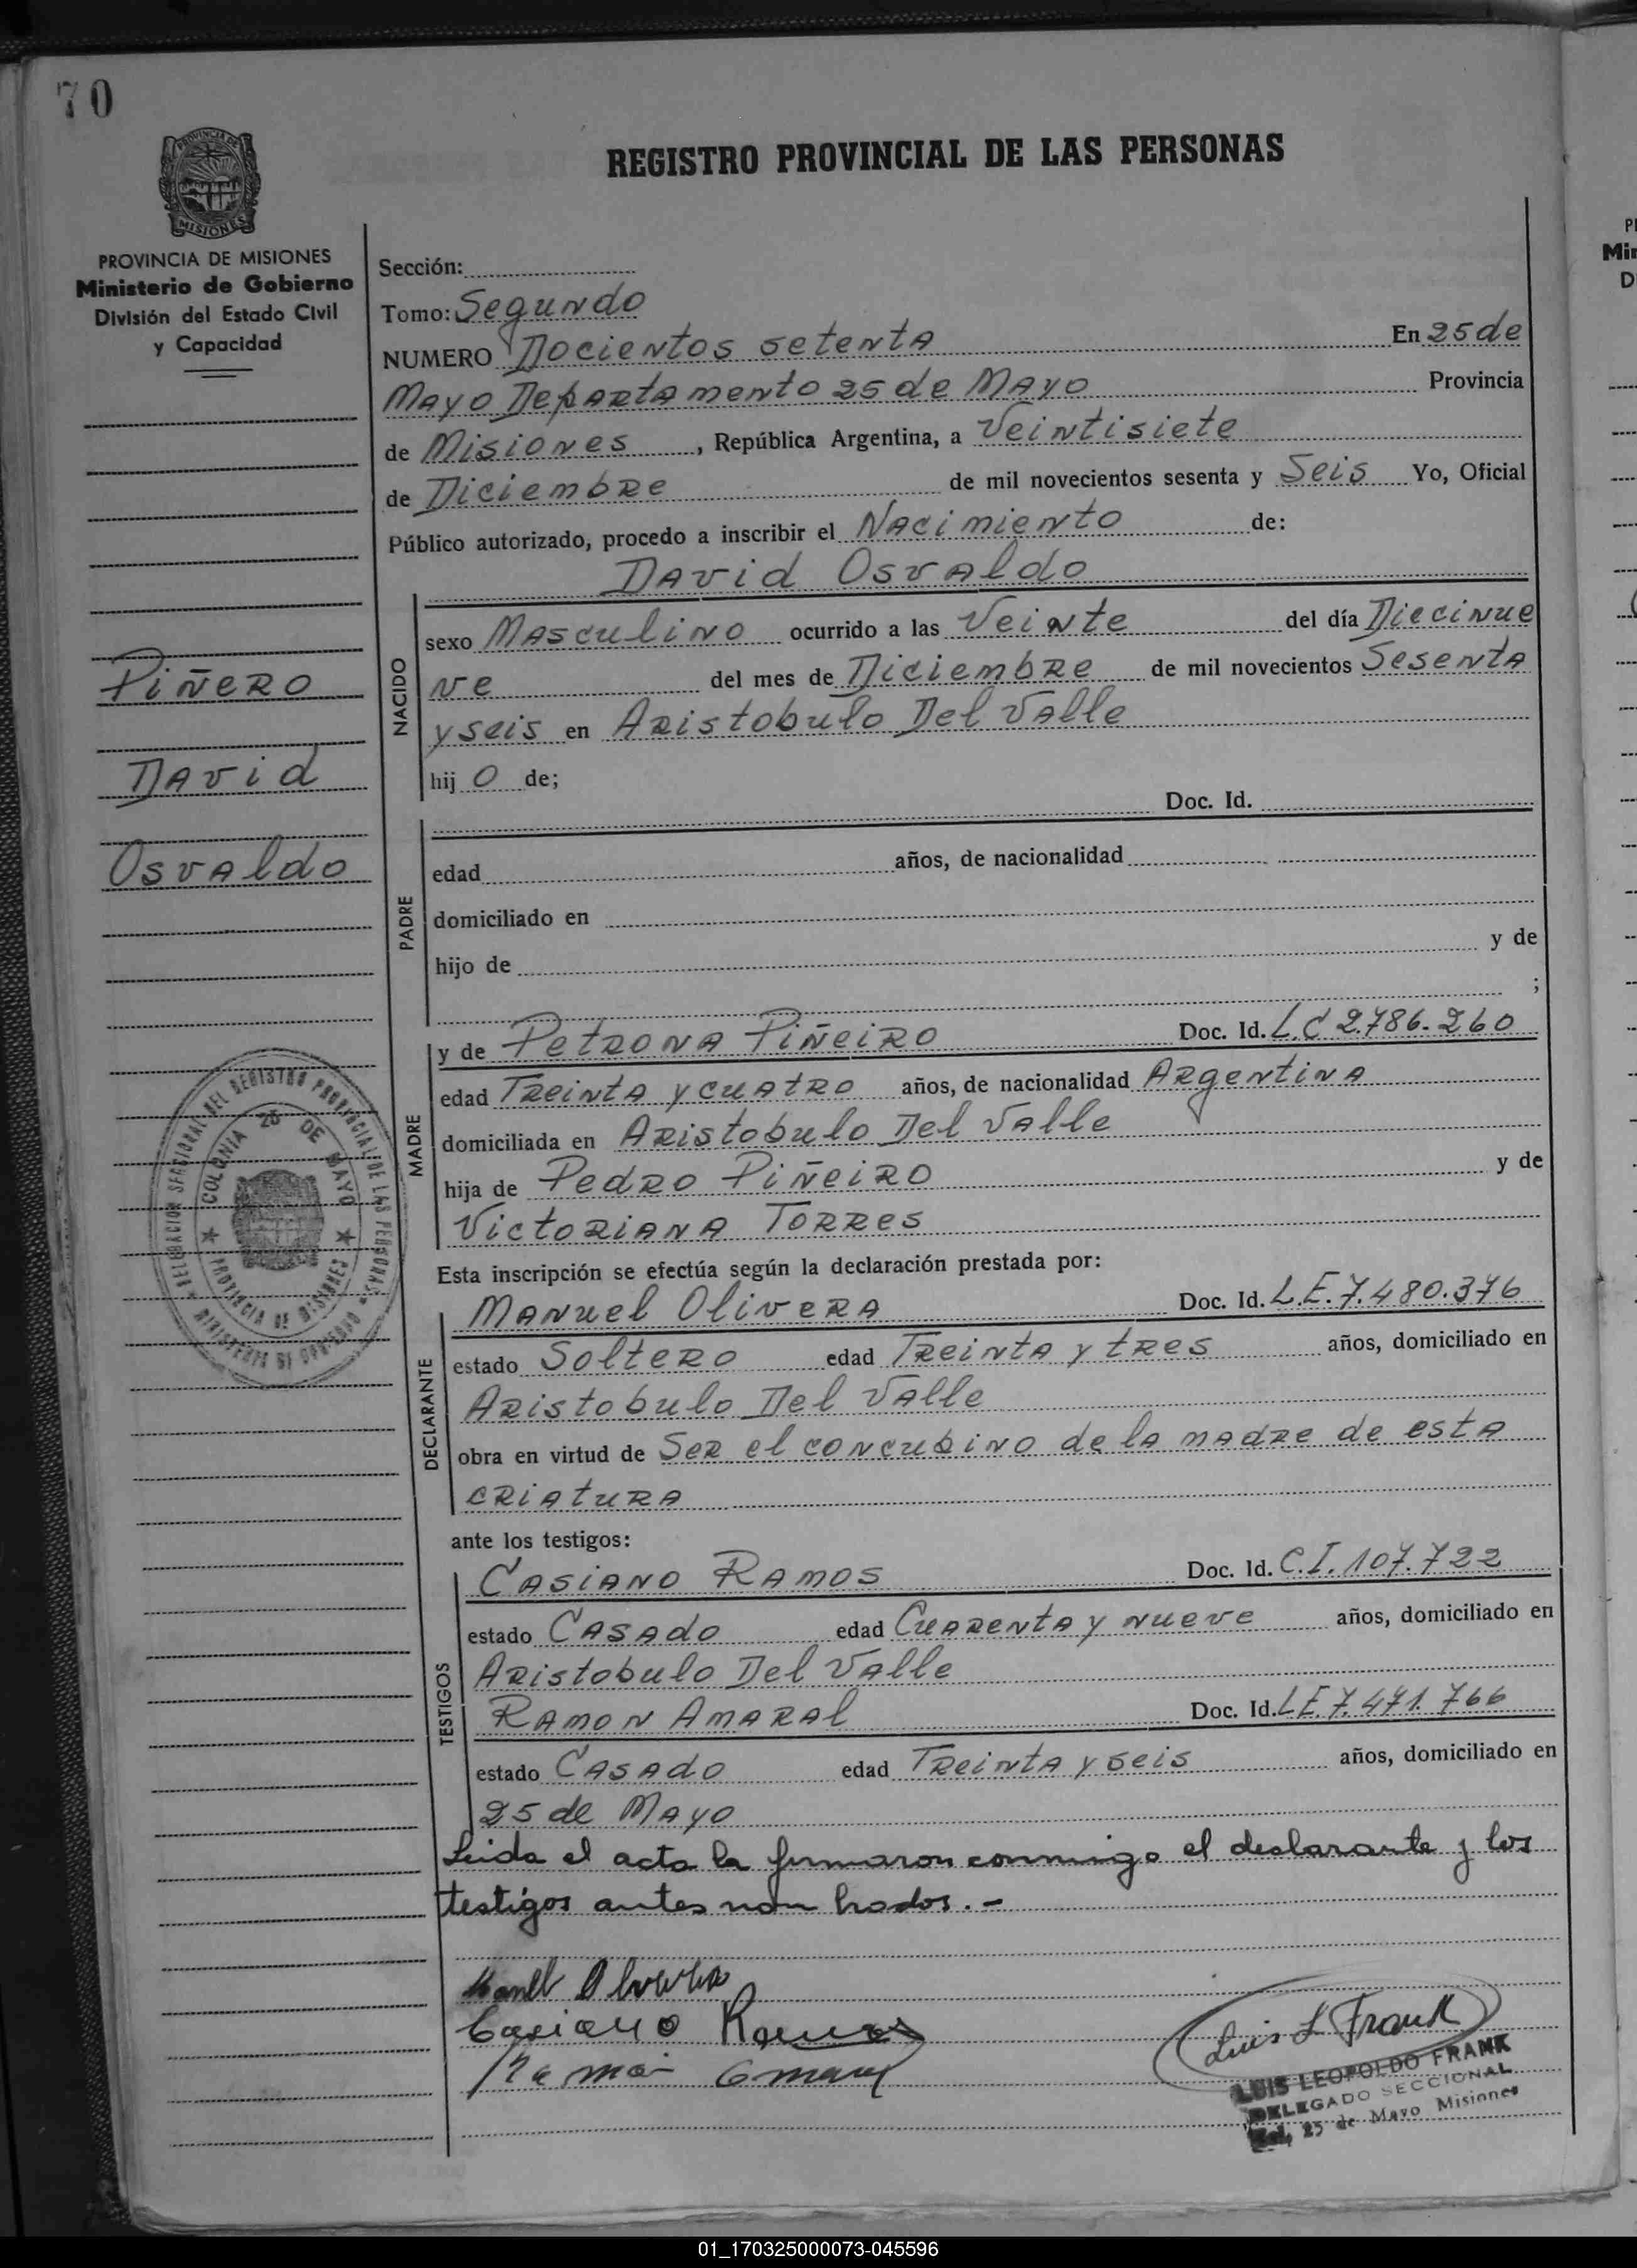 70
PROVINCIA DE
MISIONES
REGISTRO PROVINCIAL DE LAS PERSONAS
PROVINCIA DE MISIONES
Ministerio de Gobierno
División del Estado Civil
y Capacidad
Piñero
David
Osvaldo
DELEGACION SECCIONAL DEL REGISTRO PROVINCIAL DE LAS PERSONAS
MINISTERIO DE GOBIERNO
COLONIA 25 DE MAYO
PROVINCIA DE MISIONES
Sección:
Tomo: Segundo
NUMERO Docientos setenta En 25 de
Mayo Departamento 25 de Mayo Provincia
de Misiones, República Argentina, a Veintisiete
de Diciembre de mil novecientos sesenta y Seis Yo, Oficial
Público autorizado, procedo a inscribir el Nacimiento de:
David Osvaldo
NACIDO
sexo Masculino ocurrido a las Veinte del día Diecinue
ve del mes de Diciembre de mil novecientos Sesenta
y seis en Aristobulo Del Valle
hij o de;
PADRE
Doc. Id.
edad años, de nacionalidad
domiciliado en
hijo de y de
;
MADRE
y de Petrona Piñeiro Doc. Id. L.C 2.786.260
edad Treinta y cuatro años, de nacionalidad Argentina
domiciliada en Aristobulo Del Valle
hija de Pedro Piñeiro y de
Victoriana Torres
Esta inscripción se efectúa según la declaración prestada por:
DECLARANTE
Manuel Olivera Doc. Id. L.E. 7.480.376
estado Soltero edad Treinta y tres años, domiciliado en
Aristobulo Del Valle
obra en virtud de Ser el concubino de la madre de esta
criatura
ante los testigos:
TESTIGOS
Casiano Ramos Doc. Id. C.I. 107.722
estado Casado edad Cuarenta y nueve años, domiciliado en
Aristobulo Del Valle
Ramon Amaral Doc. Id. L.E. 7.471.766
estado Casado edad Treinta y seis años, domiciliado en
25 de Mayo
Leida el acta la firmaron conmigo el declarante y los
testigos antes nombrados.-
Casiano Ramos
Luis L Frank
LUIS LEOPOLDO FRANK
DELEGADO SECCIONAL
Col. 25 de Mayo Misiones
01_170325000073-045596